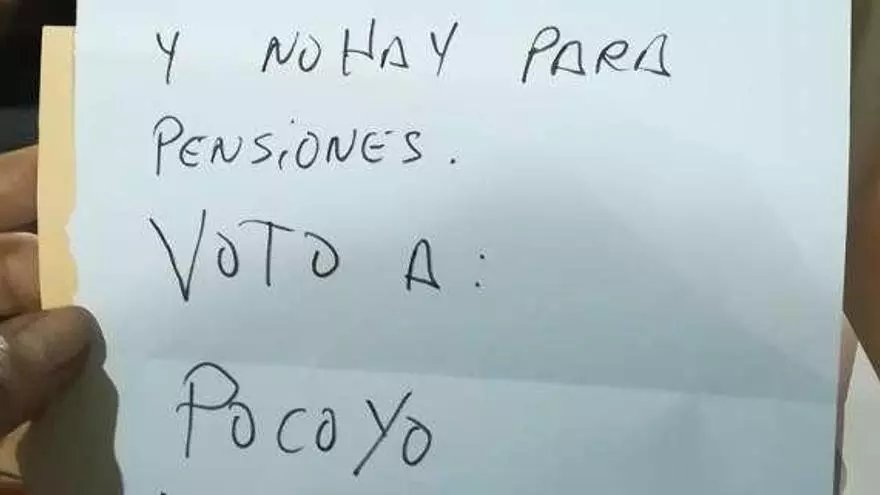 Y NO HAY PARA
PENSiONES.
VOTO A:
POCOYO